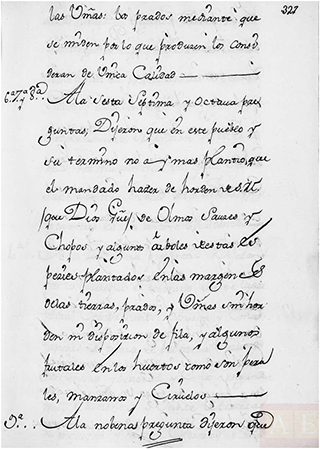 327
las Viñas: los prados mediante que
se miden por lo que produzen los consi
deran de Vnica Calidad
6.ª 7.ª y 8.ª A la Sesta Septima y octava pre
guntas; Dijeron que en este pueblo y
su termino no ay mas plantio, que
el mandado hazer de horden de S. M.
(que Dios gũe) de Olmos Sauzes y
Chopos y algunos arboles de estas es
pezies plantados en las margenes
de las tierras, prados, y Viñas sin hor
den ni disposizion de fila, y algunos
frutales en los huertos como son pera
les, manzanos y Ciruelos
9.ª A la nobena pregunta dijeron que